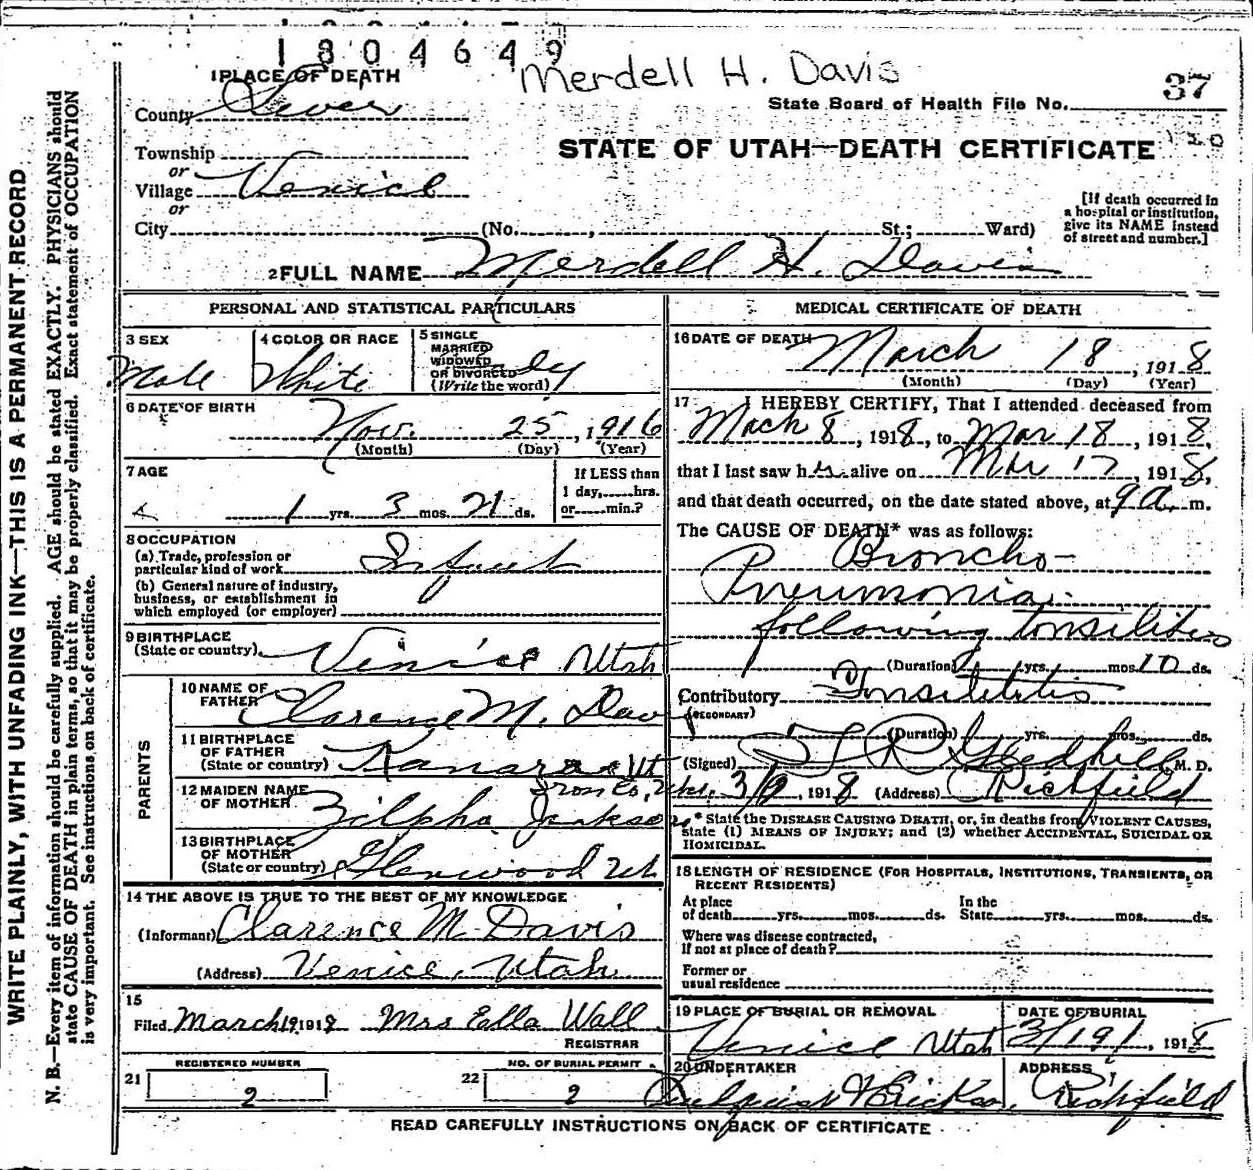 1804649
Merdell H. Davis
37
1 PLACE OF DEATH
County Sevier
State Board of Health File No.
Township
or
Village Venice
or
City (No. , St.; Ward)
STATE OF UTAH—DEATH CERTIFICATE
[If death occurred in
a hospital or institution,
give its NAME instead
of street and number.]
2 FULL NAME Merdell H. Davis
PERSONAL AND STATISTICAL PARTICULARS
3 SEX
Male
4 COLOR OR RACE
White
5 SINGLE
MARRIED
WIDOWED
OR DIVORCED
(Write the word)
6 DATE OF BIRTH
Nov. 25, 1916
(Month) (Day) (Year)
7 AGE
1 yrs. 3 mos. 21 ds.
If LESS than
1 day,......hrs.
or......min.?
8 OCCUPATION
(a) Trade, profession or
particular kind of work Infant
(b) General nature of industry,
business, or establishment in
which employed (or employer)
9 BIRTHPLACE
(State or country) Venice Utah
PARENTS
10 NAME OF
FATHER Clarence M. Davis
11 BIRTHPLACE
OF FATHER
(State or country) Kanara Ut
Iron Co, Utah.
12 MAIDEN NAME
OF MOTHER Zilpha Jackson
13 BIRTHPLACE
OF MOTHER
(State or country) Glenwood Ut
14 THE ABOVE IS TRUE TO THE BEST OF MY KNOWLEDGE
(Informant) Clarence M. Davis
(Address) Venice, Utah.
15
Filed March 19, 1918 Mrs Ella Wall
REGISTRAR
REGISTERED NUMBER
21 2
NO. OF BURIAL PERMIT
22 2
MEDICAL CERTIFICATE OF DEATH
16 DATE OF DEATH
March 18, 1918
(Month) (Day) (Year)
17 I HEREBY CERTIFY, That I attended deceased from
Mach 8, 1918, to Mar 18, 1918,
that I last saw h alive on Mar 17, 1918,
and that death occurred, on the date stated above, at 9 a. m.
The CAUSE OF DEATH* was as follows:
Broncho-
Pneumonia.
following tonsilitis
(Duration) yrs. mos. 10 ds.
Contributory Tonsilitis
(SECONDARY)
(Duration) yrs. mos. ds.
(Signed) T R Gledhill M. D.
, 1918 (Address) Richfield
* State the DISEASE CAUSING DEATH, or, in deaths from VIOLENT CAUSES,
state (1) MEANS OF INJURY; and (2) whether ACCIDENTAL, SUICIDAL OR
HOMICIDAL.
18 LENGTH OF RESIDENCE (FOR HOSPITALS, INSTITUTIONS, TRANSIENTS, OR
RECENT RESIDENTS)
At place
of death yrs. mos. ds.
In the
State yrs. mos. ds.
Where was disease contracted,
if not at place of death?
Former or
usual residence
19 PLACE OF BURIAL OR REMOVAL
Venice Utah
DATE OF BURIAL
3/19/, 1918
20 UNDERTAKER
ADDRESS
Richfield
READ CAREFULLY INSTRUCTIONS ON BACK OF CERTIFICATE
WRITE PLAINLY, WITH UNFADING INK—THIS IS A PERMANENT RECORD
N. B.—Every item of information should be carefully supplied. AGE should be stated EXACTLY. PHYSICIANS should
state CAUSE OF DEATH in plain terms, so that it may be properly classified. Exact statement of OCCUPATION
is very important. See instructions on back of certificate.